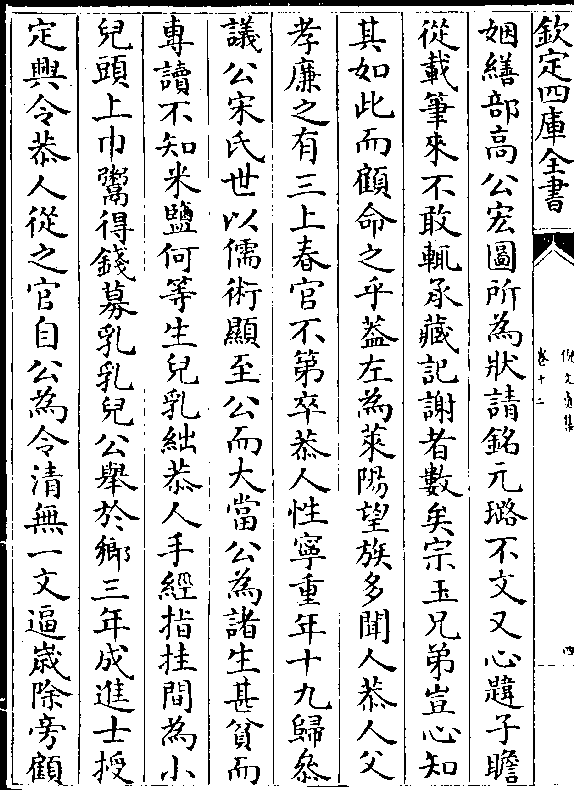 欽定四庫全書
倪文貞集
卷十二
四
姻繕部高公宏圖所為狀請銘元璐不文又心韙子瞻
從載筆來不敢輒承藏記謝者數矣宗玉兄弟豈心知
其如此而顧命之乎蓋左為萊陽望族多聞人恭人父
孝廉之有三上春官不第卒恭人性寧重年十九歸叅
議公宋氏世以儒術顯至公而大當公為諸生甚貧而
專讀不知米鹽何等生兒乳絀恭人手經指挂間為小
兒頭上巾鬻得錢募乳乳兒公舉於鄉三年成進士授
定興令恭人從之官自公為令清無一文逼嵗除旁顧